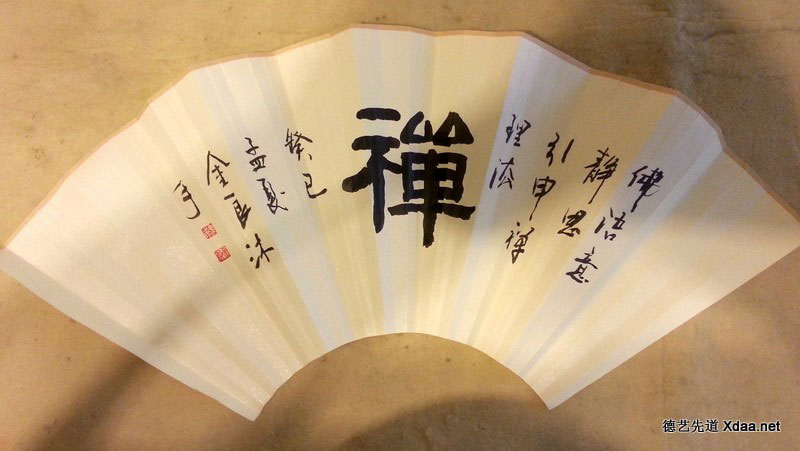 佛语意
静思
引申禅
理法
禅
癸巳
孟夏
金良沐
手
德艺先道 Xdaa.net